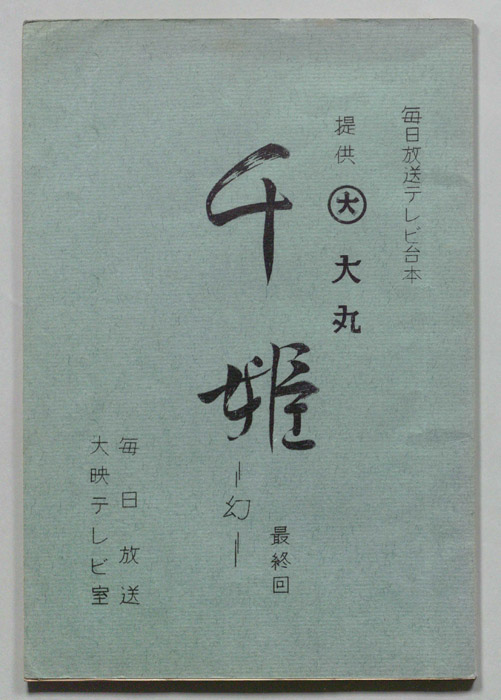 毎日放送テレビ台本
提供 大 大丸
千姫
=幻=
最終回
毎日放送
大映テレビ室